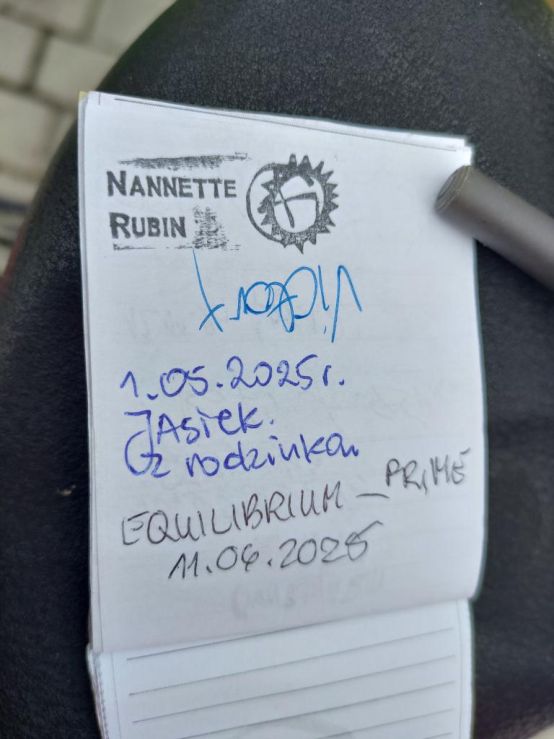 NANNETTE
RUBIN
1.05.2025r.
JAsiek.
z rodzinką
EQUILIBRIUM_PRIME
11.06.2025